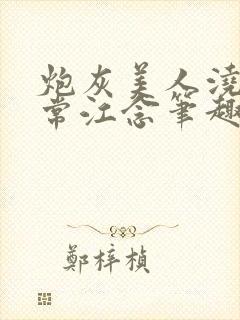 炮灰美人澆
常江念筆趣
鄭梓楨